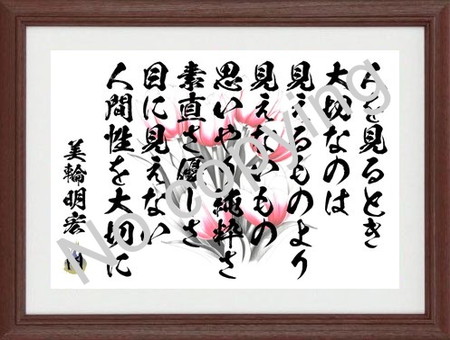 人を見るとき
大切なのは
見えるものより
見えないもの
思いやり 純粋さ
素直さ 優しさ
目に見えない
人間性を大切に
美輪明宏
No copying